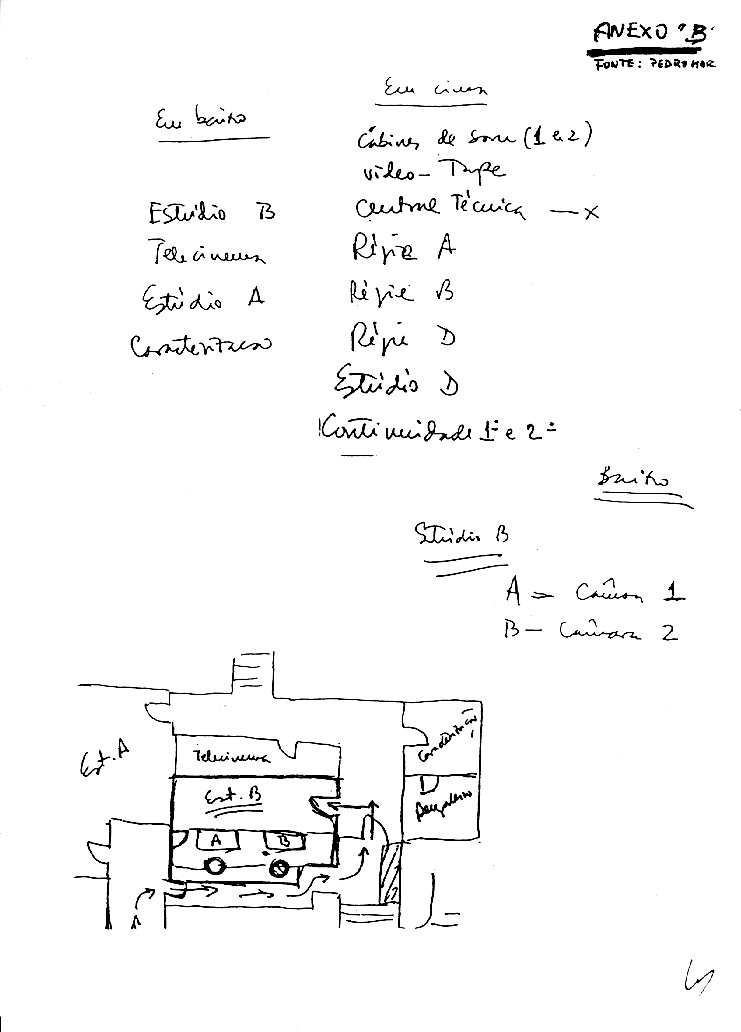 ANEXO "B"
FONTE: PEDRO MOR
Em baixo
Estúdio B
Telecinema
Estúdio A
Caracterizacao
Em cima
Cábines de som (1 e 2)
video - Tape
Central Técnica — x
Régie A
Régie B
Régie D
Estúdio D
Continuidade 1ª e 2ª
Baixo
Stúdio B
A = Câmara 1
B — Câmara 2
Est. A
Telecinema
Est. B
A
B
Caracterização